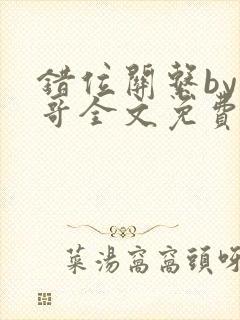 錯位關繫by
哥全文免費
菜湯窩窩頭呀